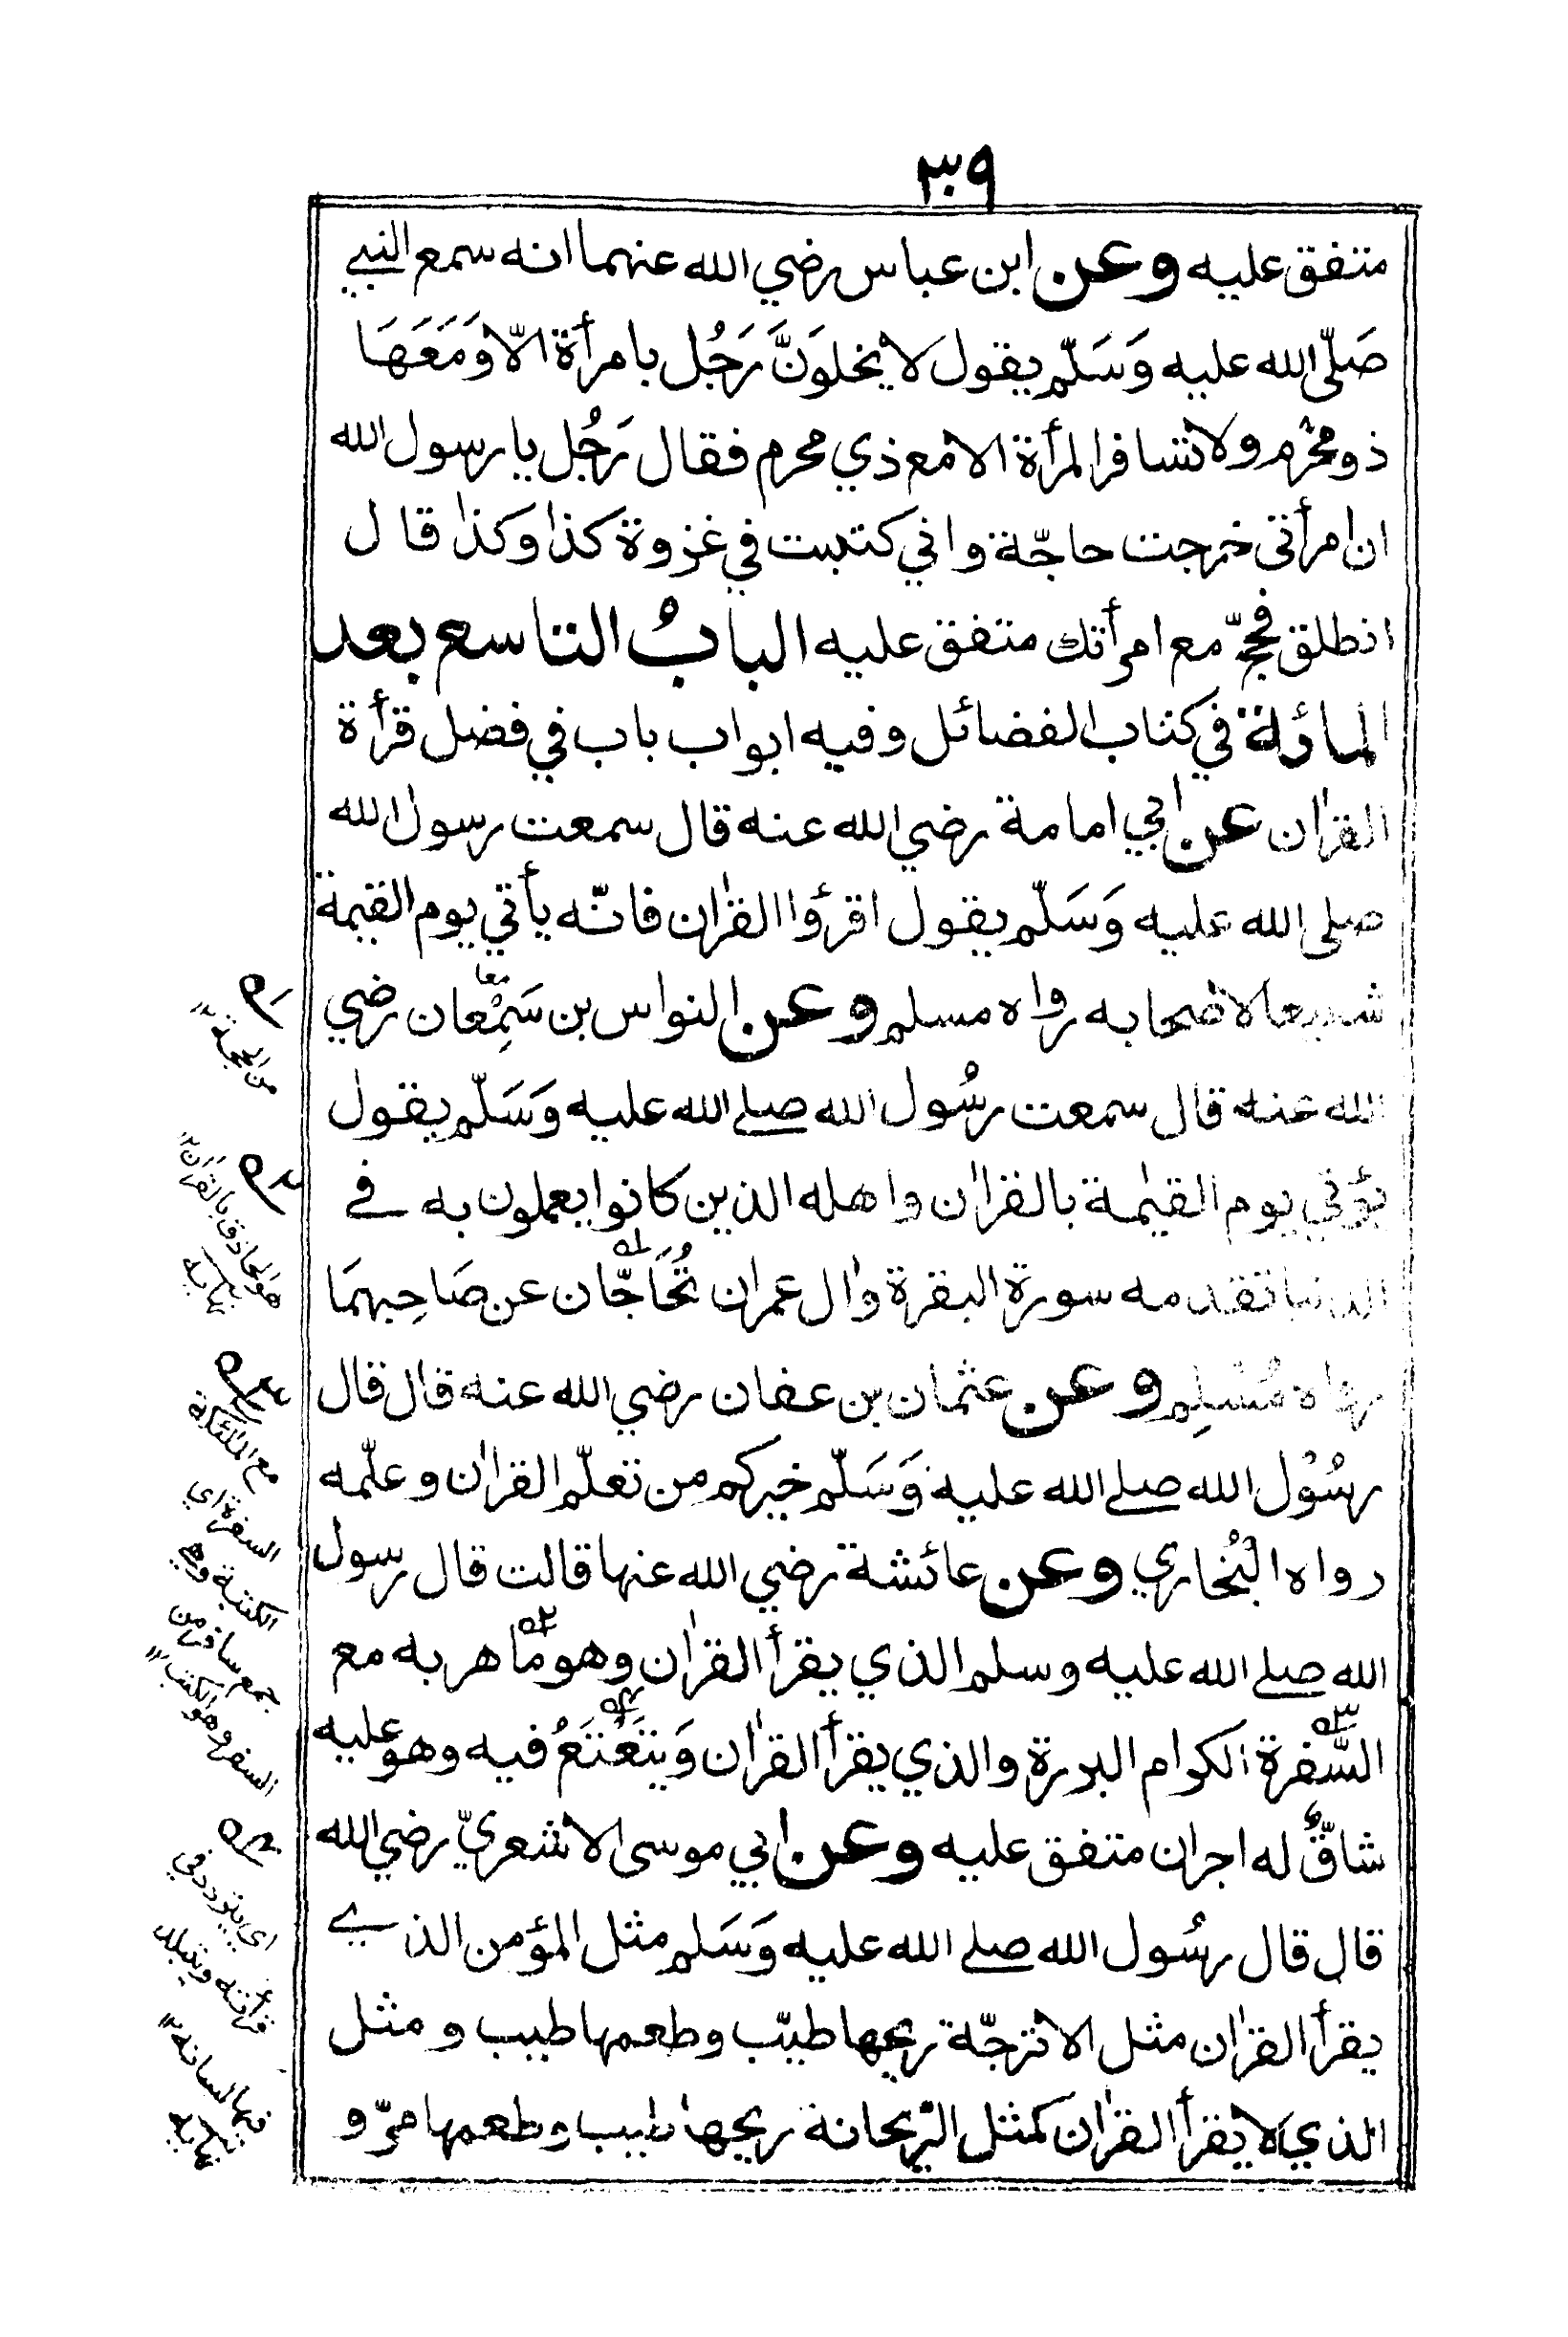 ٣٠٩
متفق عليه وعن ابن عباس رضي الله عنهما انه سمع النبي
صَلّى الله عليه وَسَلّم يقول لا يخلوَنَّ رَجُل بامرأة الّا وَمَعَهَا
ذو محْرَم ولا تسافر المرأة الا مع ذي محرم فقال رَجُل يا رسول الله
ان امرأتي خرجت حاجّة واني كتبت في غزوة كذا وكذا قال
انطلق فحجّ مع امرأتك متفق عليه البابُ التاسع بعد
المائة في كتاب الفضائل وفيه ابواب باب في فضل قرأة
القرٰان عن ابي امامة رضي الله عنه قال سمعت رسول الله
صلى الله عليه وَسَلّم يقول اقرؤا القرٰان فانّه يأتي يوم القيمة
شفيعا لاصحابه رواه مسلم وعن النواس بن سَمِْعان رضي
معا
الله عنه قال سمعت رسُول الله صلے الله عليه وَسَلّم يقول
يؤتي يوم القيٰمة بالقرٰان واهله الذين كانوا يعملون به في
الدنيا تقدمه سورة البقرة وٰال عمران تُحَاجّان عن صَاحِبهمَا
رواه مُسْلِم وعن عثمان بن عفان رضي الله عنه قال قال
رسُوْل الله صلے الله عليه وَسَلّم خيركم من تعلّم القرٰان وعلّمه
رواه البُخاري وعن عائشة رضي الله عنها قالت قال رسول
الله صلے الله عليه وسلم الذي يقرأ القرٰان وهو ماهر به مع
السَّفرة الكرام البررة والذي يقرأ القرٰان وَيتَعْتَعُ فيه وهو عليه
شاقٌّ له اجران متفق عليه وعن ابي موسى الاشعريّ رضي الله
قال قال رسُول الله صلے الله عليه وَسَلم مثل المؤمن الذي
يقرأ القرٰان مثل الاترجّة ريحها طيّب وطعمها طيب ومثل
الذي لا يقرأ القرٰان كمثل الرّيحانة ريحها طيب وطعمها مرّ و
١
من المحاجة ١٢
٢
هو الحاذق بالقرٰان ١٢
نهايه
٣
مع الملٰئكة
السفرة اي
الكتبة وهي
جمع سافر من
السفر وهو الكتب ١٢
٤
اي يتردد في
قرأته ويتبلد
فيها لسانه ١٢
نهايه